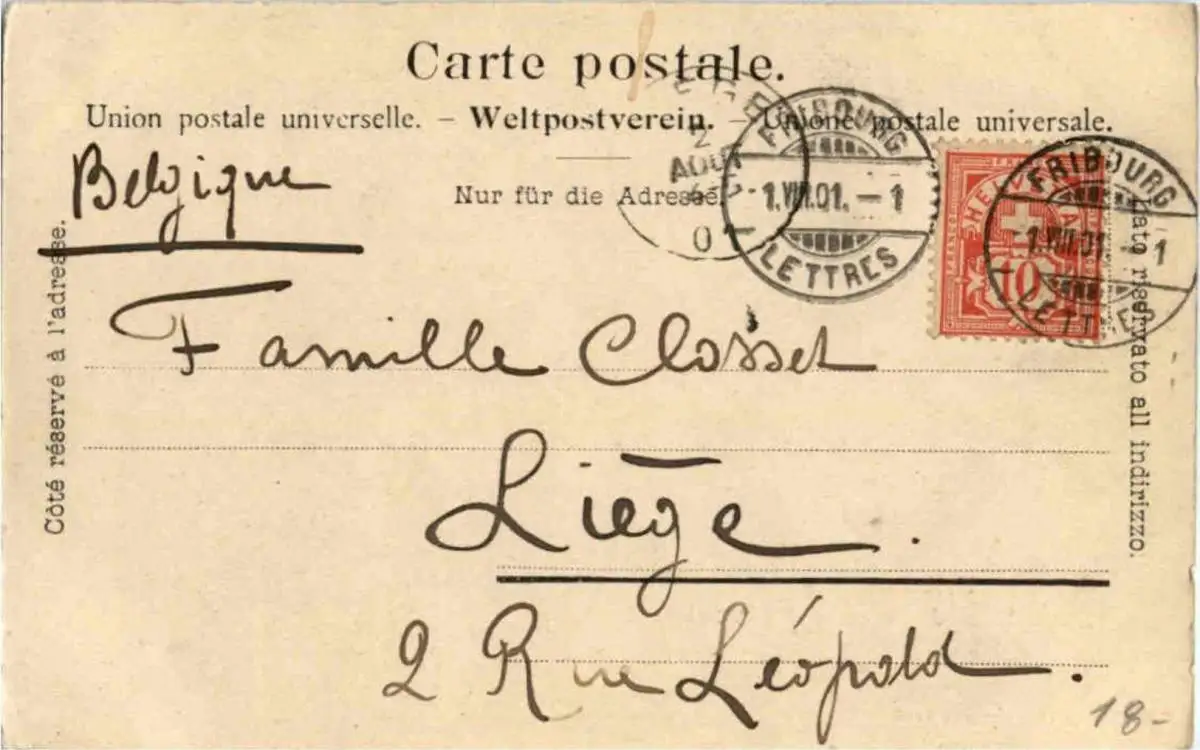 Carte postale.
Union postale universelle. – Weltpostverein. – Unione postale universale.
Nur für die Adresse.
Belgique
Côté réservé à l'adresse.
Lato riservato all indirizzo.
2
AOUT
01
FRIBOURG
1.VIII.01. – 1
LETTRES
FRIBOURG
1.VIII.01. – 1
LETTRES
HELVETIA
FRANCO
10
Famille Closset
Liège.
2 Rue Léopold.
18-